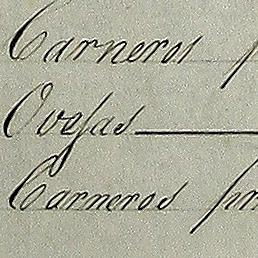 Carneros p
Ovejas
Carneros pri